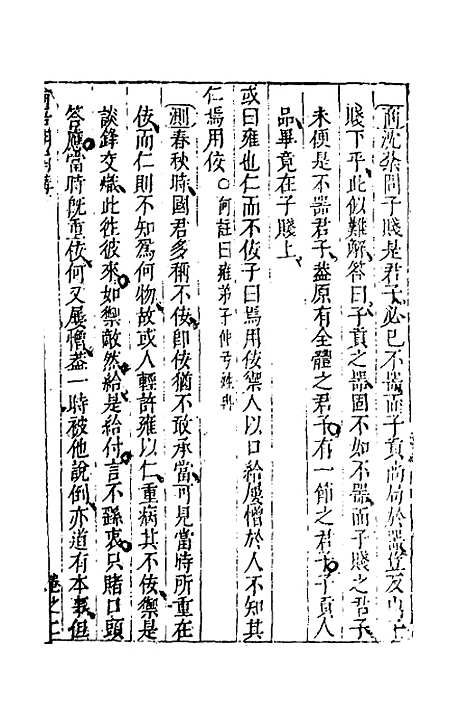 商沈筞問子賤是君子必已不器而子貢尚局於器豈反出子
賤下乎此似難解答曰子貢之器固不如不器而子賤之君子
未便是不器君子蓋原有全體之君子有一節之君子子貢人
品畢竟在子賤上
或曰雍也仁而不佞子曰焉用佞禦人以口給屢憎於人不知其
仁焉用佞○何註曰雍弟子仲弓姓冉
測春秋時國君多稱不佞卽佞猶不敢承當可見當時所重在
佞而仁則不知為何物故或人輕許雍以仁重病其不佞禦是
談鋒交熾此往彼來如禦敵然給是給付言不繇衷只賭口頭
答應當時旣重佞何又屢憎蓋一時被他說倒亦道有本事但
卷之二